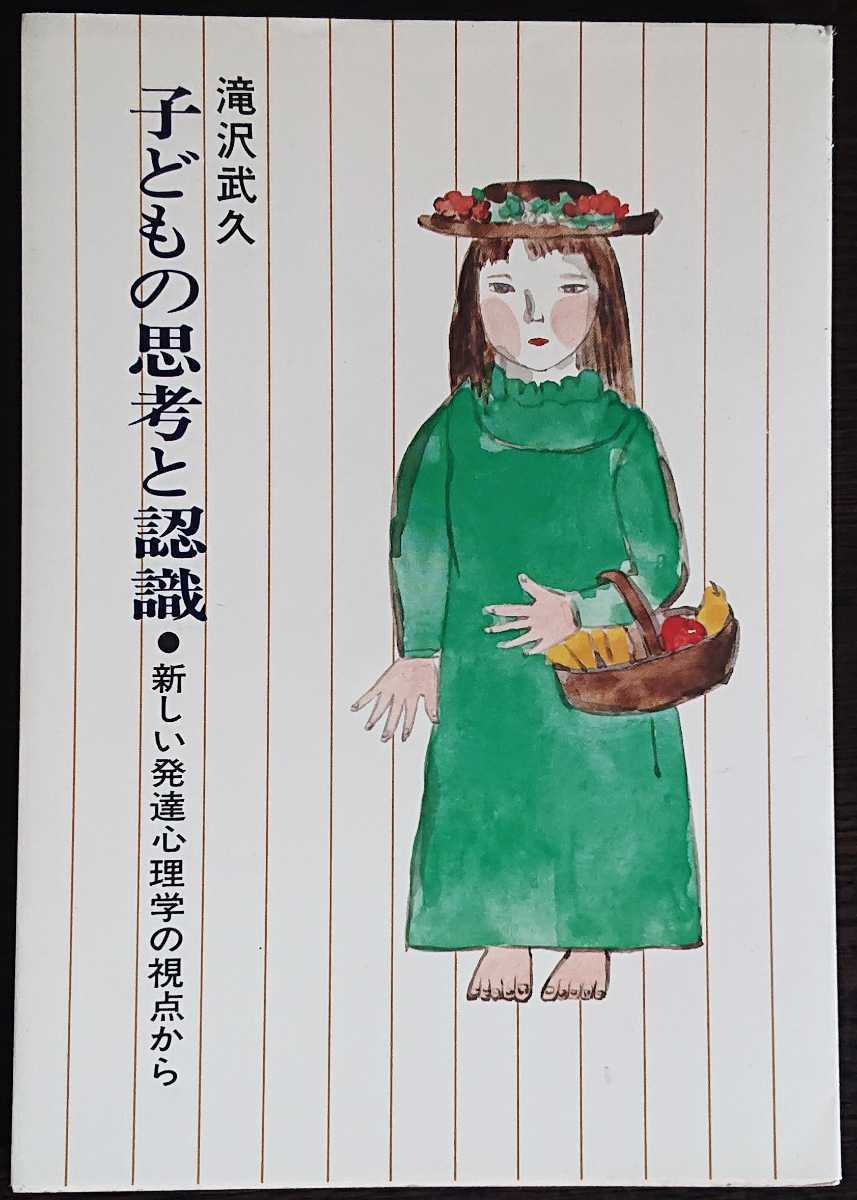 滝沢武久
子どもの思考と認識●新しい発達心理学の視点から